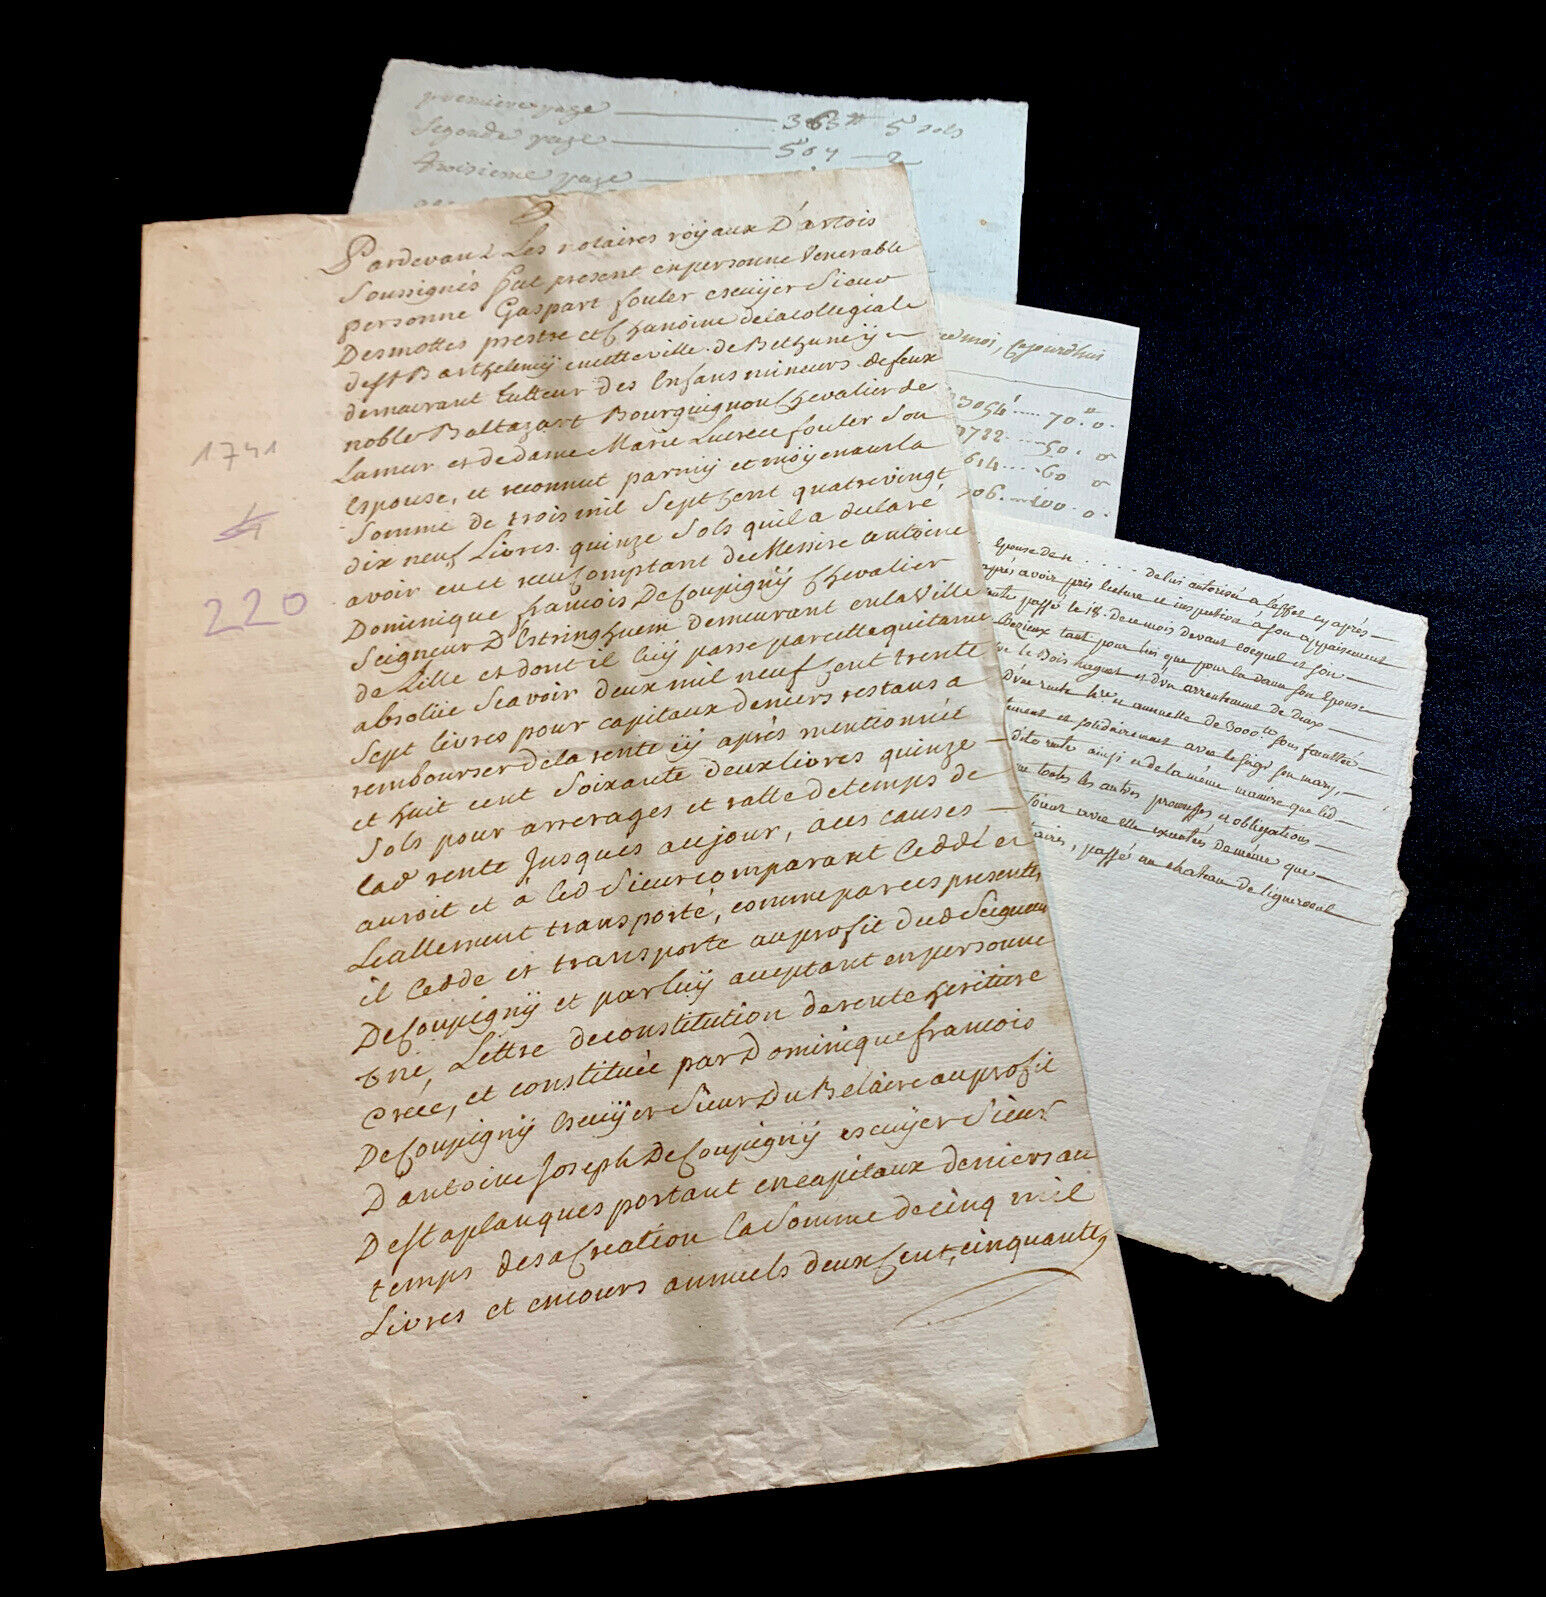 premiere page 363 ₶ 5 sols
Segonde page 507 2
troisieme page
Pardevant Les notaires röÿaux D'artois
Soussignés fut present en personne Venerable
personne Gaspart fouler escuÿer Sieur
Desmottes prestre et Chanoine de la Collegiale
de St Barthelemÿ en cette ville de Bethune ÿ
demeurant tutteur des Enfans mineurs de feux
noble Baltazart Bourguignon Chevalier de
Lamur et de dame Marie Lucrece fouler Son
Espouse, et reconnut parmÿ et moÿenant la
Somme de trois mil Sept Cent quatrevingt
dix neuf Livres quinze Sols quil a declaré
avoir eu et receu Comptant de Messire Antoine
Dominique francois De Coupignÿ Chevalier
Seigneur D'Estringhuem demeurant en la Ville
de Lille et dont il luÿ passe par cette quitance
absolüe Scavoir deux mil neuf Cent trente
Sept livres pour capitaux deniers restans a
rembourser de la rente ÿÿ aprés mentionnée
et huit cent Soixante deux livres quinze
Sols pour arrerages et ratte de temps de
lad rente Jusques au jour, a ces causes
auroit et à led Sieur comparant Ceddé et
Leallement transporté, comme par ces presentes
il Cedde et transporte au profit dud Seigneur
De Coupignÿ et par luÿ acceptant en personne
une Lettre de constitution de rente heritiere
Creée, et constituée par Dominique francois
De Coupignÿ Escuÿer Sieur Du Belaire au profit
D'antoine Joseph De Coupignÿ escuÿer Sieur
Destaplanques portant en capitaux deniers au
temps de sa Creation la Somme de Cinq mil
Livres et en cours annuels deux Cent, cinquante
1741
220
moi, Cejourdhui
3054 70 . 0 .
722 50 . 0
614 60 0
706 100 . 0 .
Epouse de n . . . . . de lui autorisée a l'effet cy après
après avoir pris lecture et inspection a son appaisement
passé le 18. de ce mois devant Cocquel et son
Bezieux tant pour lui que pour la dame son Epouse
le Bois huguet et d'un arrentement de deux
D'une rente hre et annuelle de 3000 tt sous faculté
et solidairement avec led sieur son mary,
dite rente ainsi et de la même maniere que led
toutes les autres promesses et obligations
Sieur avec elle executées de même que
, passé au chateau de lignereuil